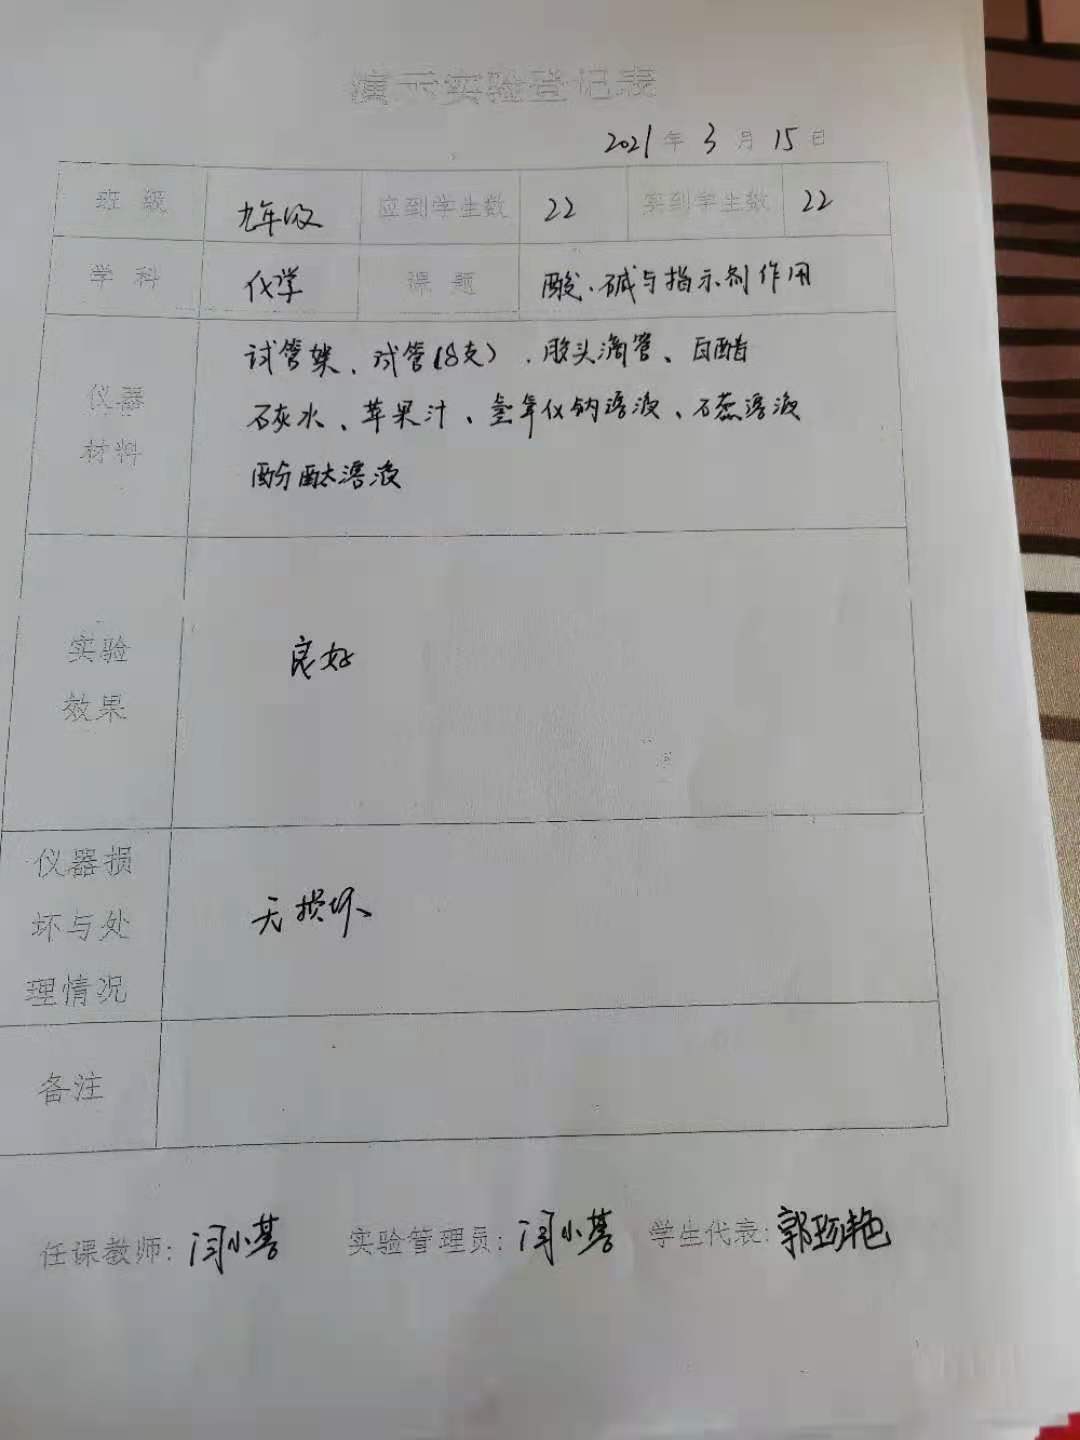 演示实验登记表
2021年3月15日
班级 九年级 应到学生数 22 实到学生数 22
学科 化学 课题 酸、碱与指示剂作用
仪器材料
试管架、试管(8支)、胶头滴管、白醋
石灰水、苹果汁、氢氧化钠溶液、石蕊溶液
酚酞溶液
实验
效果
良好
仪器损
坏与处
理情况
无损坏
备注
任课教师:闫小 实验管理员:闫小 学生代表:郭艳